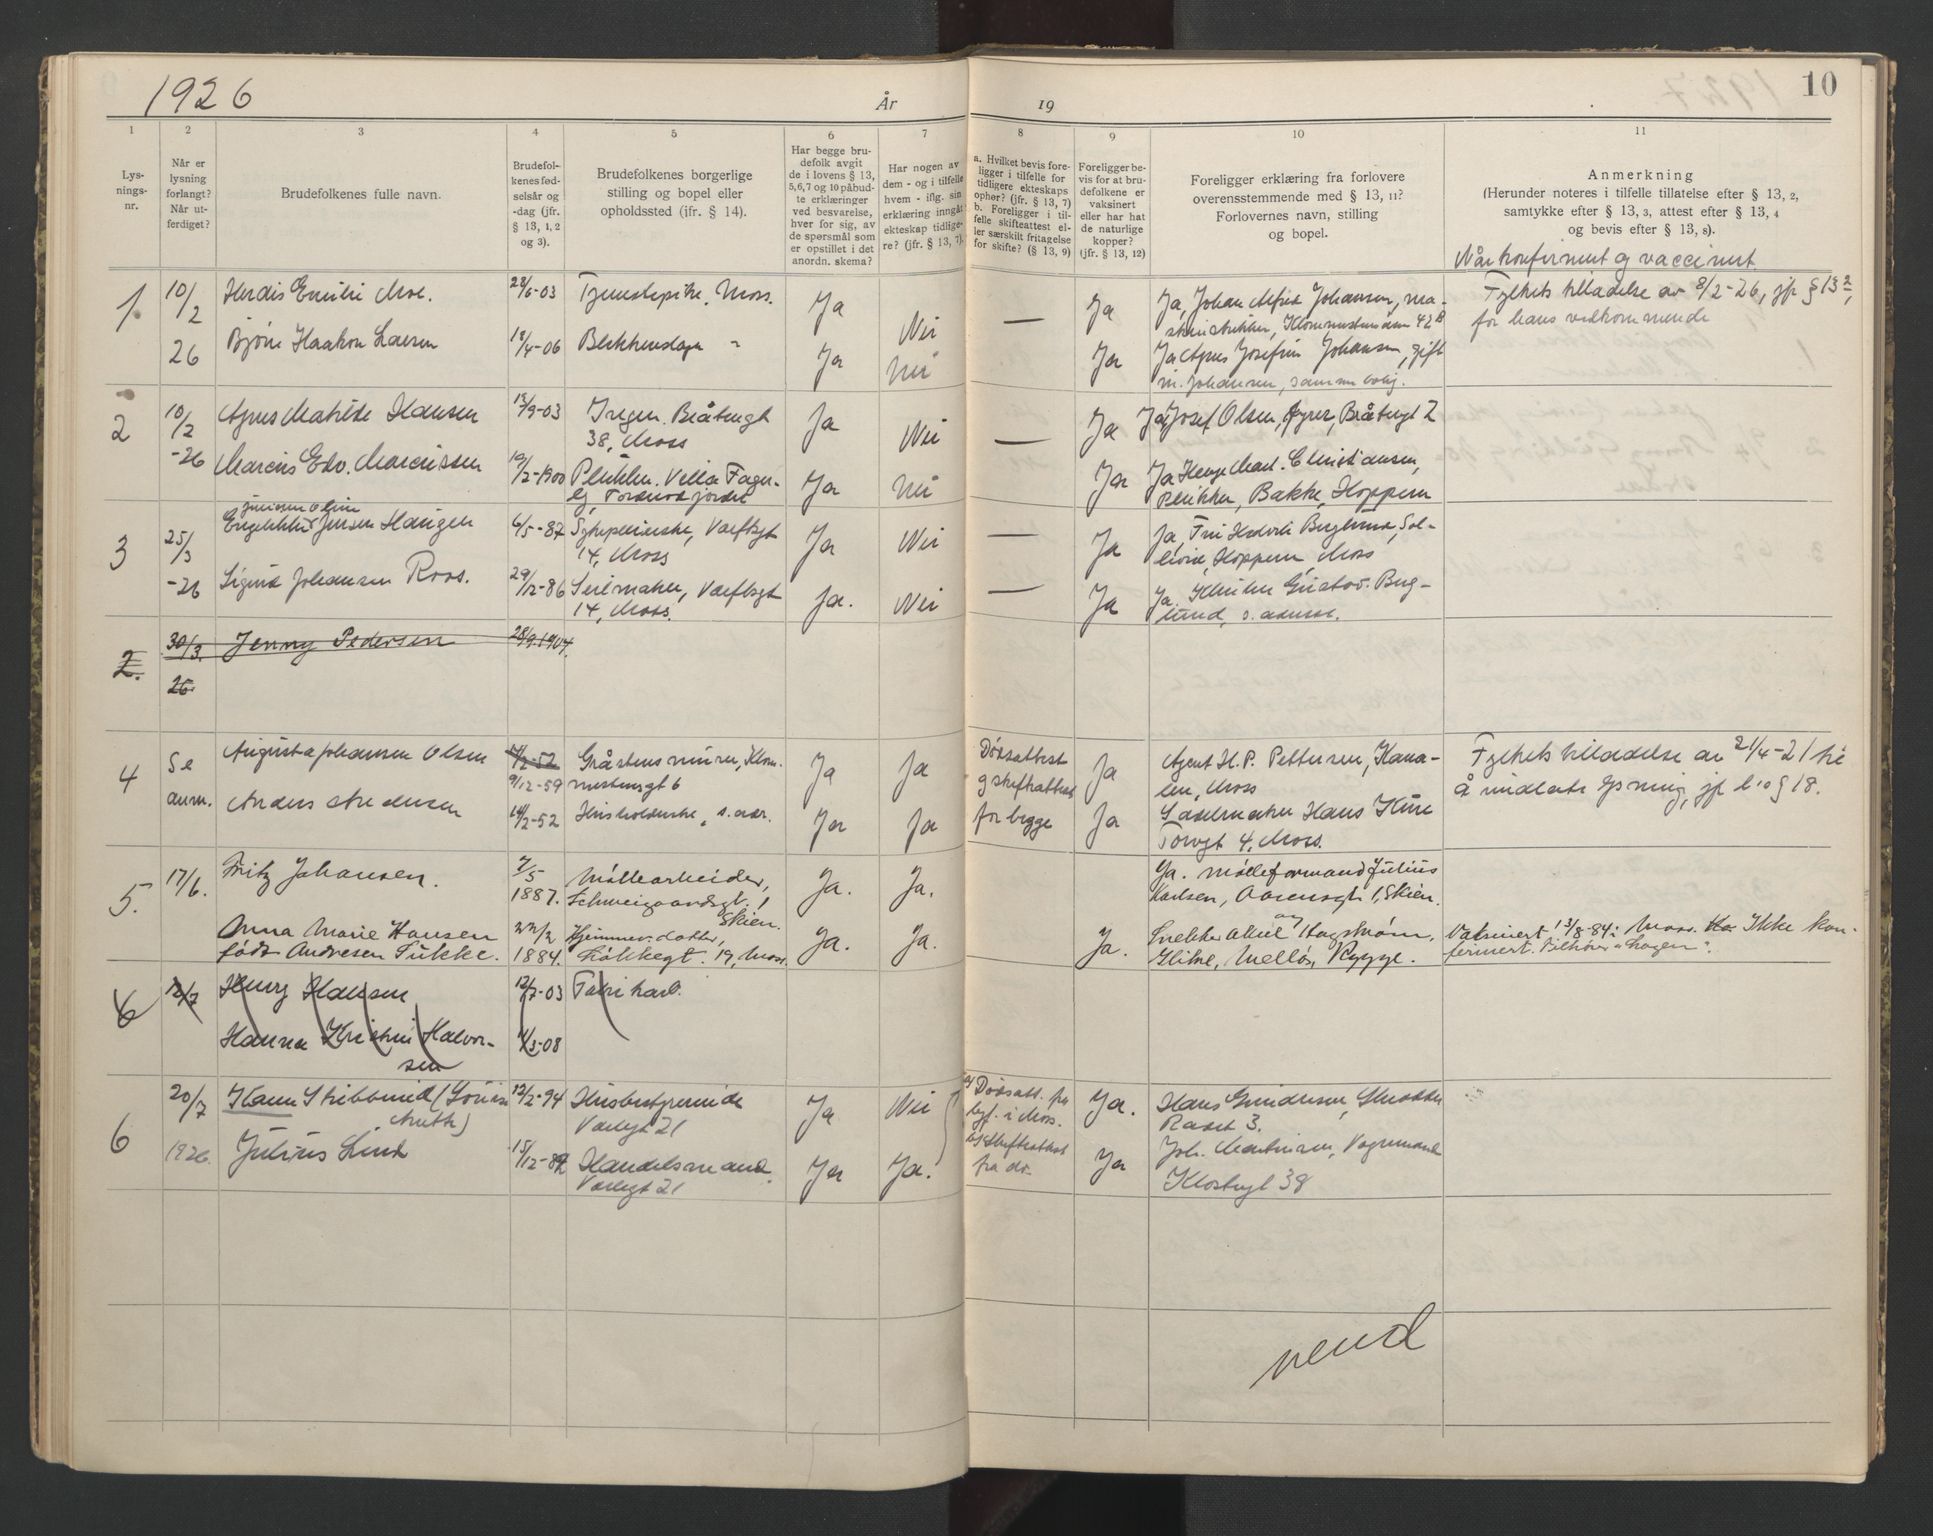 1926
År
19
10
1
2
3
4
5
6
7
8
9
10
11
Lys-
nings-
nr.
Når er
lysning
forlangt?
Når ut-
ferdiget?
Brudefolkenes fulle navn.
Brudefol-
kenes fød-
selsår og
-dag (jfr.
§ 13, 1, 2
og 3).
Brudefolkenes borgerlige
stilling og bopel eller
opholdssted (jfr. § 14).
Har begge bru-
defolk avgit
de i lovens § 13,
5,6,7 og 10 påbud-
te erklæringer
ved besvarelse,
hver for sig, av
de spørsmål som
er opstillet i det
anordn. skema?
Har nogen av
dem - og i tilfelle
hvem - iflg. sin
erklæring inngåt
ekteskap tidlige-
re? (jfr. § 13, 7).
a. Hvilket bevis fore-
ligger i tilfelle for
tidligere ekteskaps
ophør? (jfr. § 13, 7)
b. Foreligger i til-
felle skifteattest el-
ler særskilt fritagelse
for skifte? (§ 13, 9)
Foreligger be-
vis for at bru-
defolkene er
vaksinert
eller har hat
de naturlige
kopper?
(jfr. § 13, 12)
Foreligger erklæring fra forlovere
overensstemmende med § 13, 11?
Forlovernes navn, stilling
og bopel.
Anmerkning
(Herunder noteres i tilfelle tillatelse efter § 13, 2,
samtykke efter § 13, 3, attest efter § 13, 4
og bevis efter § 13, 8).
Når konfirmert og vaccinert
1
10/2
26
Herdis Emilie Moe.
28/6-03
Tjenestepike, Moss.
Ja
Nei
—
Ja
Ja, Johan Alfred Johansen, ma-
42B
Fylkets tilladelse av 8/2-26, jfr § 13 2,
for hans vedkommende
Bjørn Haakon Larsen
18/4-06
Ja
Nei
Ja
Ja Agnes Josefine Johansen, gift
m. Johansen, samme bolig.
2
10/2
-26
Agnes Matilde Hansen
13/9-03
Ingen. Bråtengt
38, Moss
Ja
Nei
—
Ja
Ja, Josef Olsen, Bråtengt 2
Marcus Edv. Marcussen
19/2-1900
Villa Fager-
Ja
Nei
Ja
Ja Helge Mart. Christiansen,
Bakke, Hoppern
3
25/3
-26
Jensen Haugen
6/5-87
Sykepleierske, Værftsgt
14, Moss
Ja
Nei
—
Ja
Ja, Fru Hedvik Berglund, Sol-
Hoppern, Moss
Sigurd Johansen Roos.
29/12-86
Seilmaker, Værftsgt
14, Moss.
Ja.
Nei
—
Ja
Ja. Gustav Berg-
lund, s. adresse.
2.
30/3.
26
Jenny Pedersen
28/9.1904.
4
Se
anm.
Augusta Johansen Olsen
14/2-52
9/12-59
Gråstensmuren, Klom-
mestensgt 6
Ja
Ja
Dødsattest
og skifteattest
for begge
Ja
Agent H. P. Pettersen, Kana-
len, Moss
Fylkets tilladelse av 21/4-21 til
å undlate lysning, jfr l 10 § 18.
Anders Andersen
14/2-52
Husholderske, s. adr.
Ja
Ja
Ja
Sadelmaker Hans Kure
Torvgt 4, Moss.
5.
17/6.
Fritz Johansen.
7/5
1887.
Møllearbeider,
Schweigaardsgt. 1
Skien.
Ja.
Ja.
Ja. Mølleformand Julius
Karlsen, Aasensgt 1, Skien.
Anna Marie Hansen
født Andresen Sukke.
22/2
1884.
Hjemmev. datter,
Løkkegt. 19, Moss.
Ja.
Ja.
Ja.
Snekker Hagstrøm,
Glitre, Melløs, Rygge.
Vaksinert 13/8-84: Moss. Ikke kon-
firmert. Tilhører "Logen".
6
12/7
Henry Hansen
12/7-03
Fabrikarb.
Hanna Kristine Halvor-
sen
11/3-08
6
20/7
1926.
Karen Stribbrud (Louise
Anette)
12/2-94
Husbestyrerinde
Varlegt 21
Ja
Nei
a) Dødsatt. fra
byf. i Moss.
b) Skifteattest
fra do.
Ja.
Hans Gundersen,
Raset 3.
Julius Lind
15/12-82
Handelsmand.
Varlegt 21
Ja
Ja.
Ja
Joh. Martinsen, Vognmand
Klostergt 38
vend